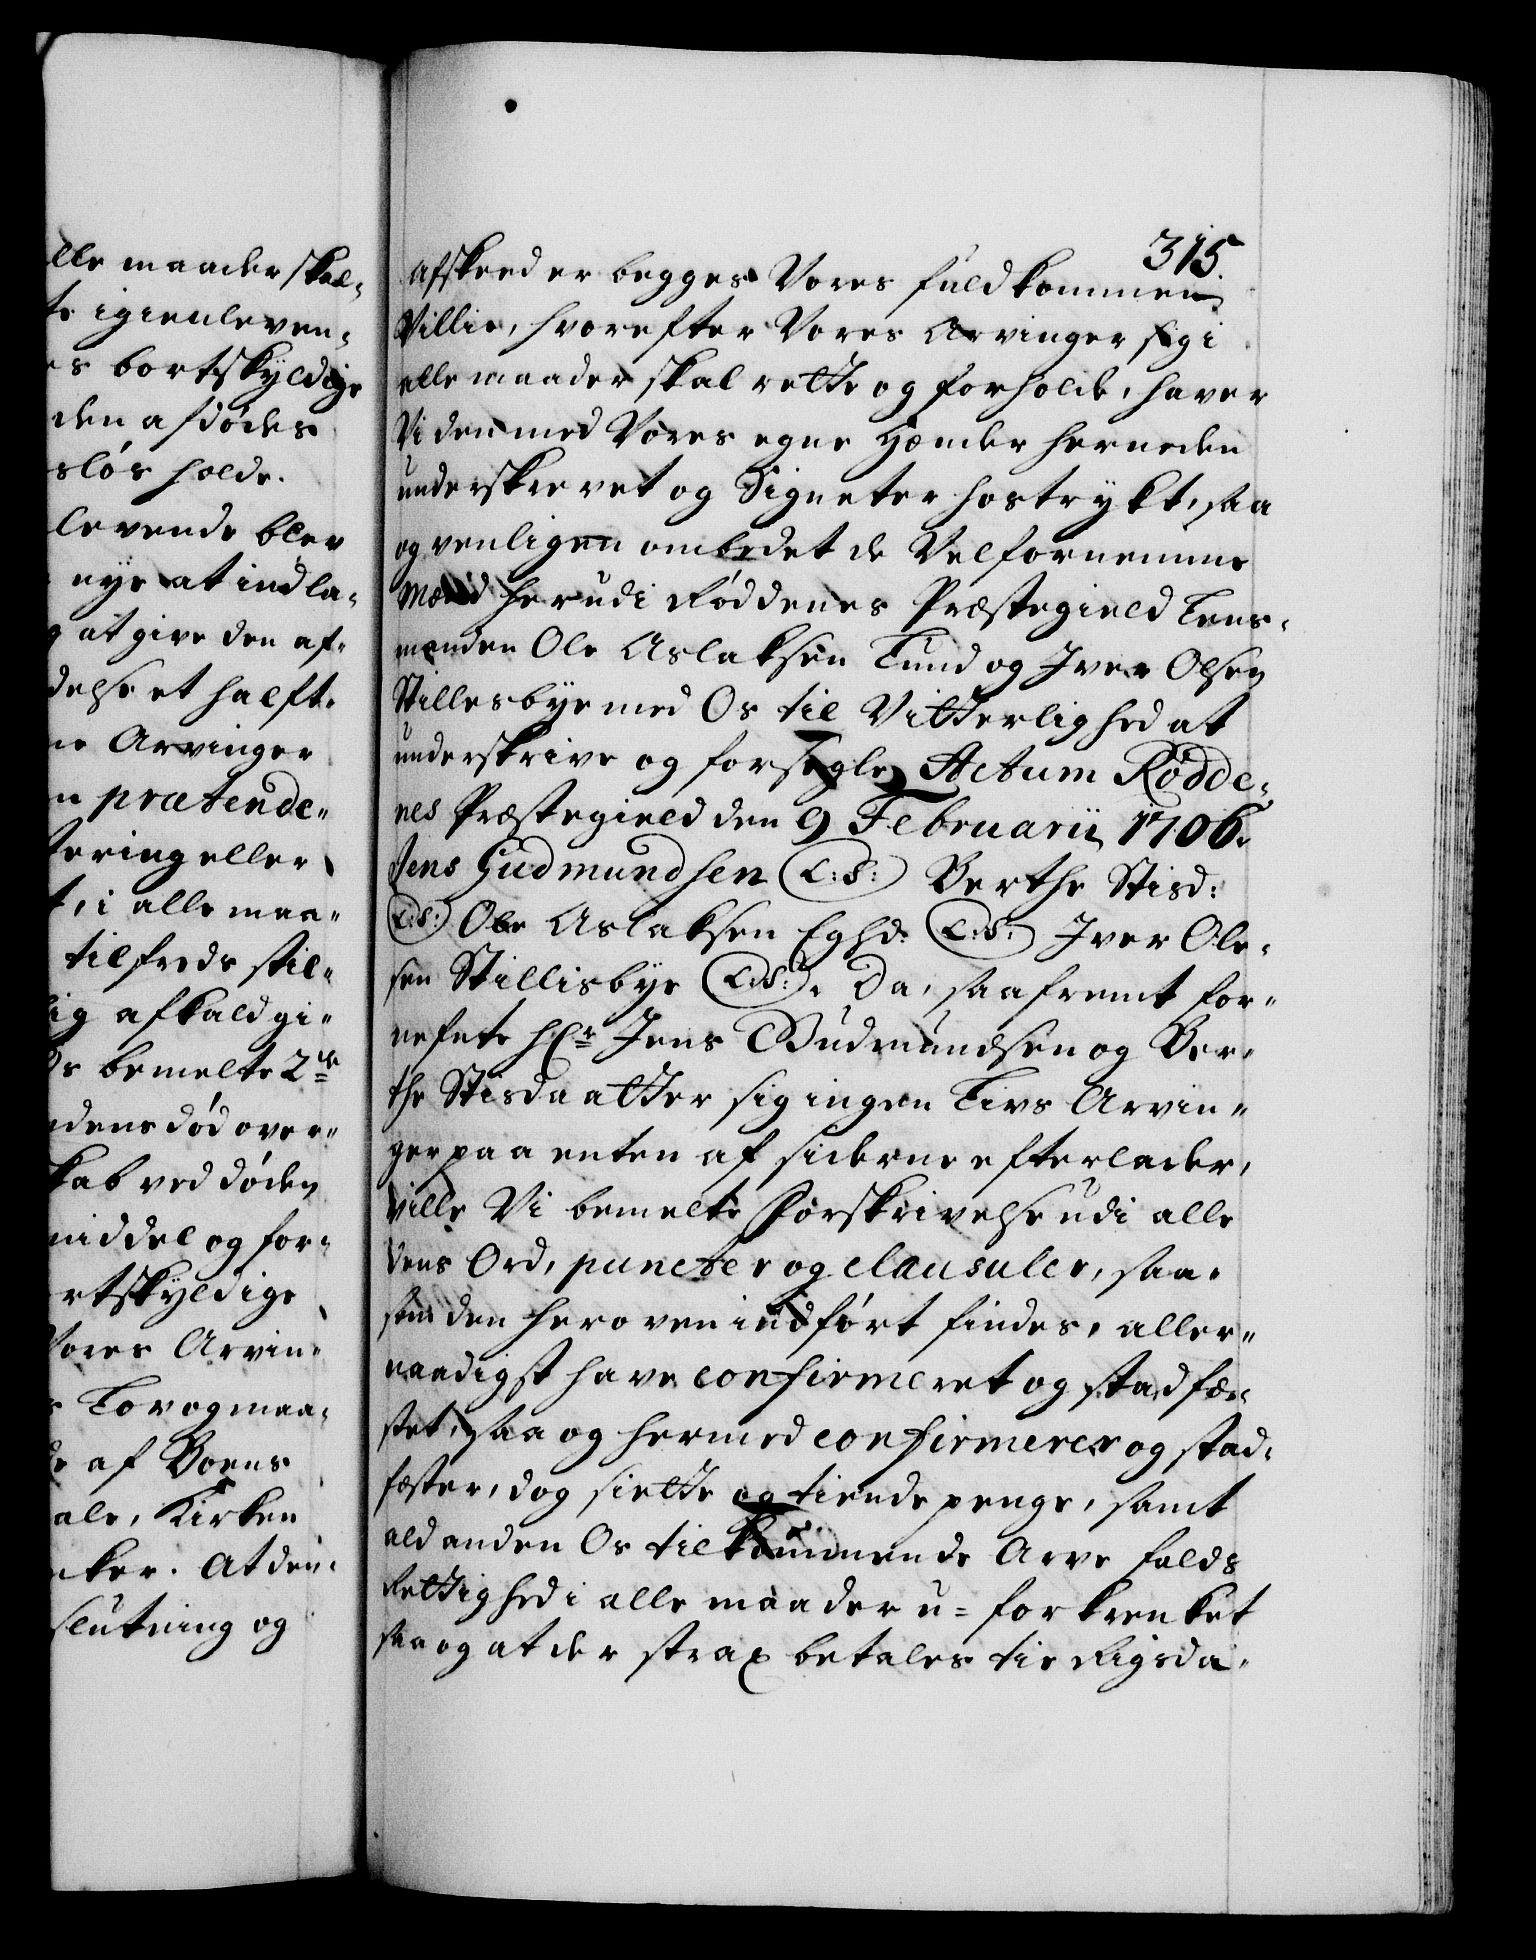 lle maader skal-
te igienleven-
es bortskyldige
den afdødes
sløs holde.
levende blev
nye at indla-
g at give den af-
delse et halft
ne Arvinger
n prætende-
tering eller
t, i alle maa-
tilfreds stil-
lig afkald gi-
De bemelte 2de
ndens død over-
skab ved døden
middel og for-
ortskyldige
Vores Arvin-
s Lov og maa-
de af Vores
ale, Kirken
cker. At den-
slutning og
315.
afskeed er begges Vores fuldkommen
Villie, hvorefter Vores Arvinger sig i
alle maader skal rette og forholde, haver
Vi den med Vores egne Hænder herneden
underskrevet og Signeter hostrykt, saa
og venligen ombedet de Velfornemme
Mænd her udi Røddenes Præstegield Lens-
manden Ole Aslaksen Lund og Iver Olsen
Stillesbye med Os til Vitterlighed at
underskrive og forsegle, Actum Rødde-
nes Præstegield den 9 Februarii 1706.
Jens Gudmundsen (L:S:) Berthe Stisd:
(L:S:) Ole Aslaksen Eghd: (L:S:) Iver Ole-
sen Stillisbye (L:S:). Da, saafremt for-
nefnte Hr Jens Gudmundsen og Ber-
the Stisdaatter sig ingen Livs Arvin-
ger paa enten af siderne efterlader,
Ville Vi bemelte Forskrivelse udi alle
dens Ord, puncter og clausuler, saa-
som den heroven indført findes, aller-
naadigst have confirmeret og stadfæ-
stet, saa og hermed confirmerer og stad-
fæster, dog siette og tiende penge, samt
ald anden Os tilkommende Arve falds
Rettighed i alle maader u-forkrenket
saa og at der strax betales tie Rigsda-